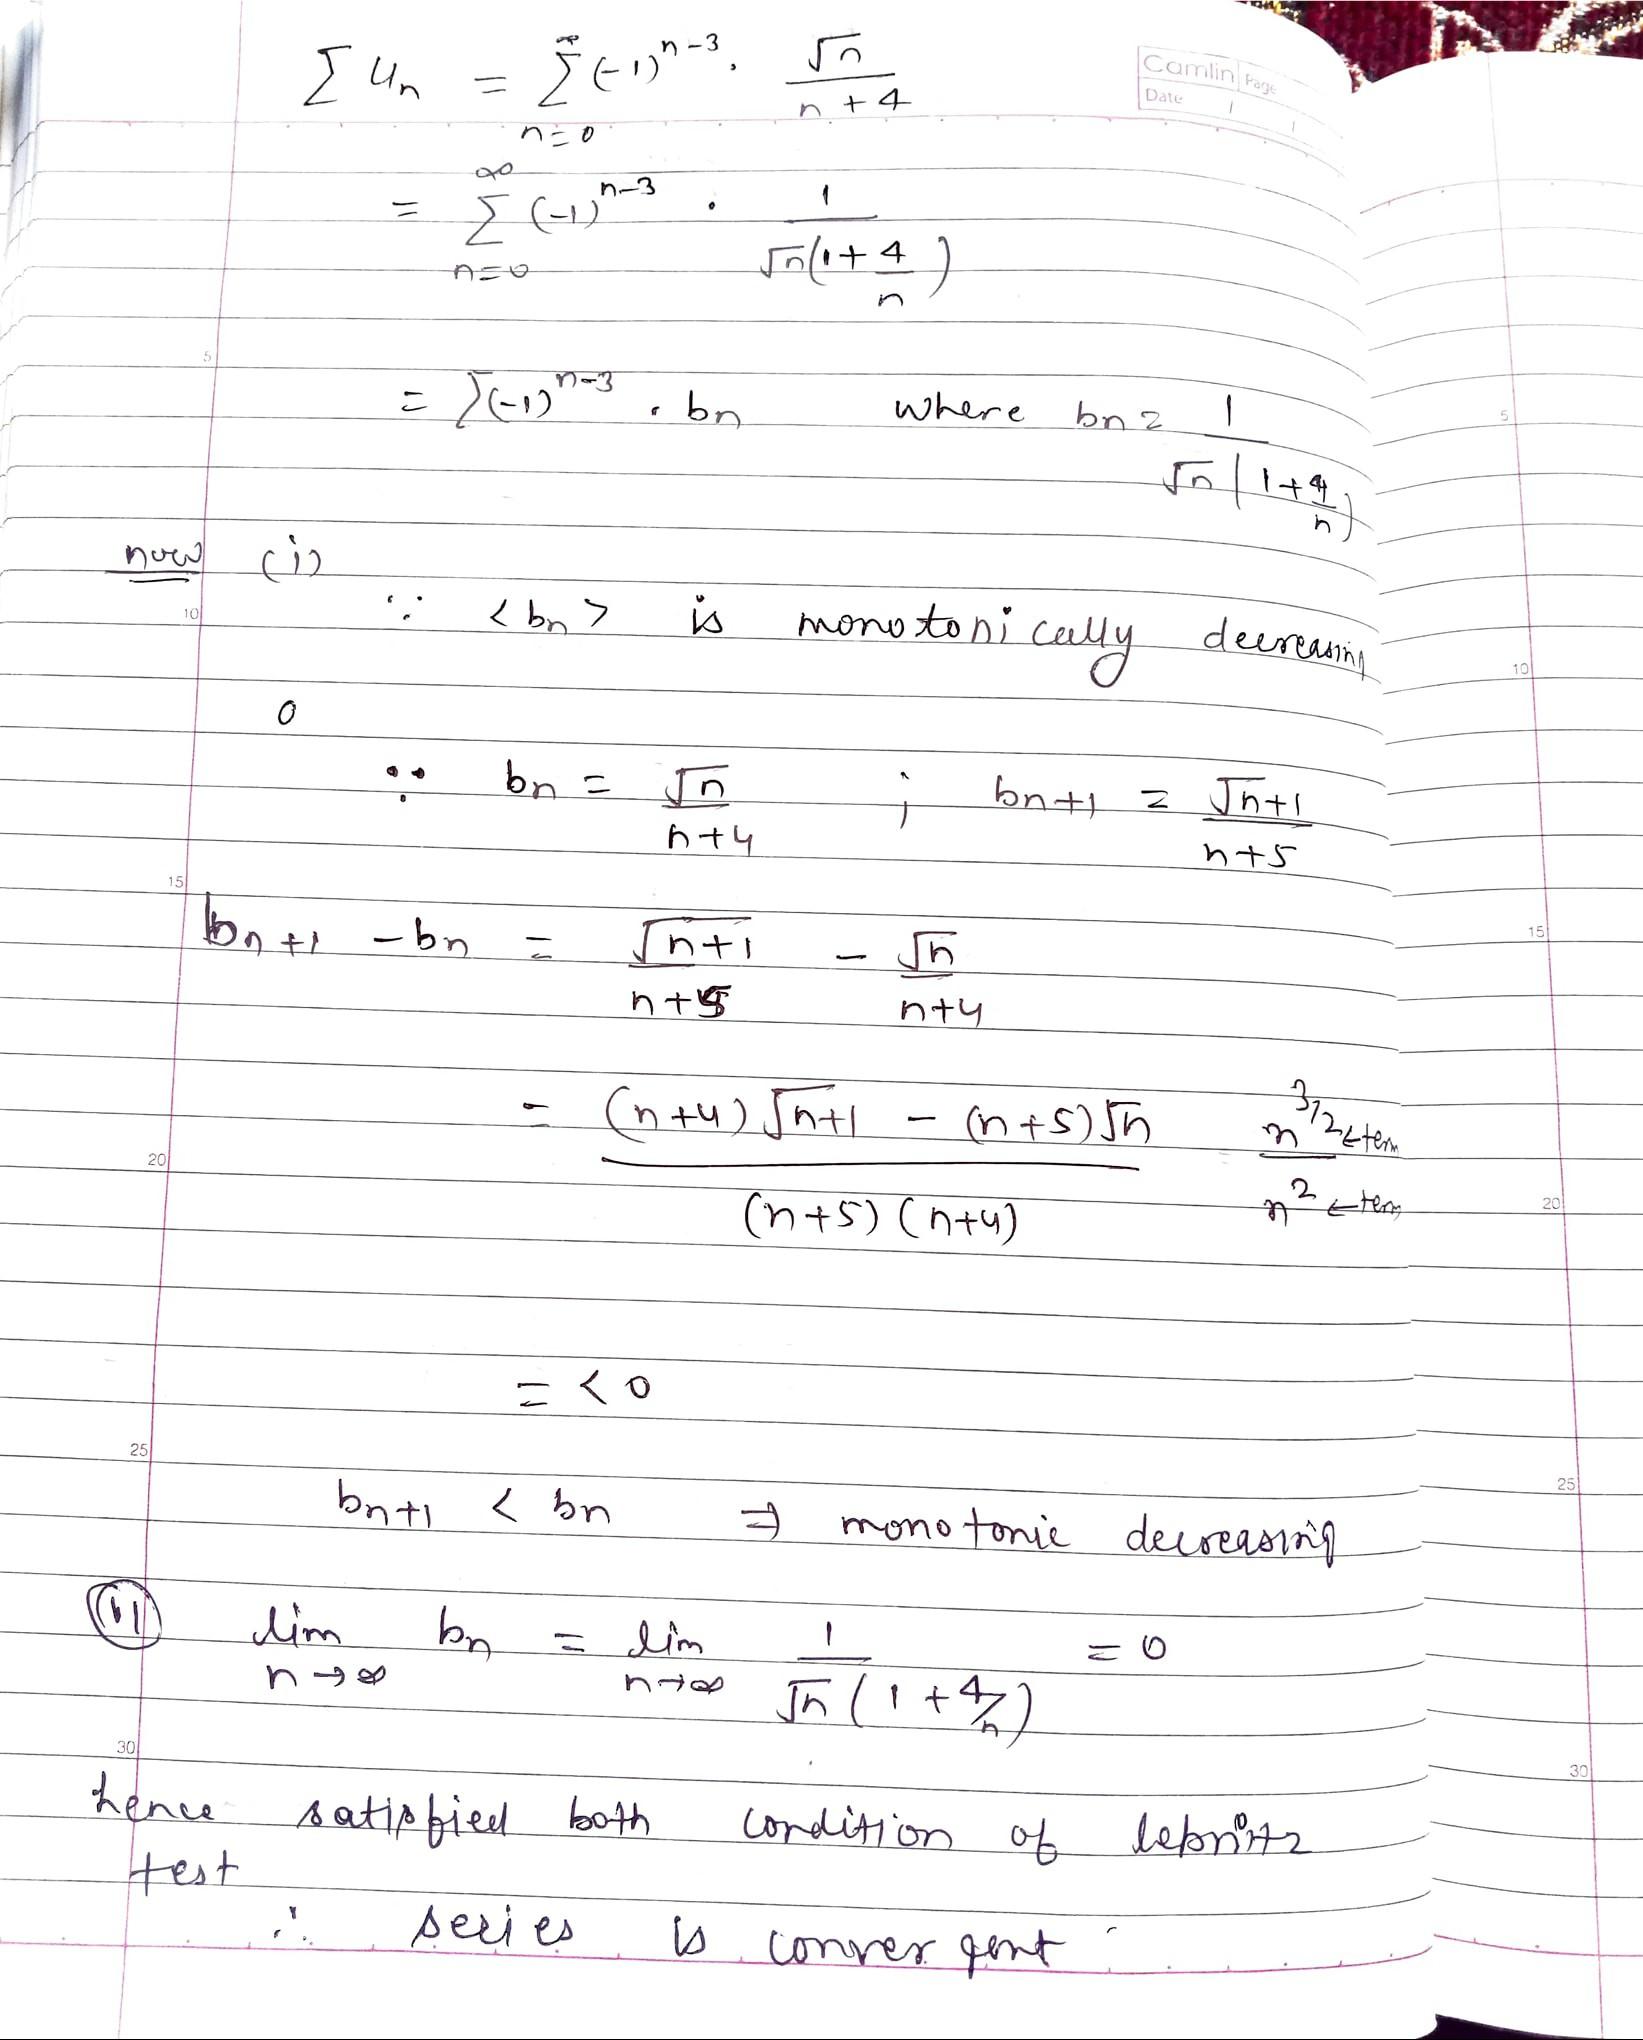 Σ uₙ = ∞Σn=0 (-1)ⁿ⁻³ . √n / n + 4
Camlin Page
Date / /
= ∞Σn=0 (-1)ⁿ⁻³ . 1 / √n(1 + 4/n)
5
= Σ(-1)ⁿ⁻³ . bn where bn = 1 / √n(1+4/n)
5
now (i)
10
∵ < bn > is monotonically decreasing
10
0
∵ bn = √n / n+4 ; bn+1 = √n+1 / n+5
15
bn+1 - bn = √n+1 / n+5 - √n / n+4
15
= (n+4)√n+1 - (n+5)√n / (n+5)(n+4) n^3/2 ← term / n² ← term
20
20
= < 0
25
bn+1 < bn ⇒ monotonic decreasing
25
(ii) lim n→∞ bn = lim n→∞ 1 / √n (1 + 4/n) = 0
30
30
hence satisfied both condition of lebnitz
test
∴ series is convergent